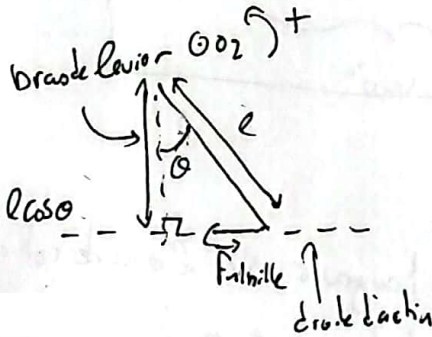 +
bras de levier O2
l
θ
l cos θ
droite d'action